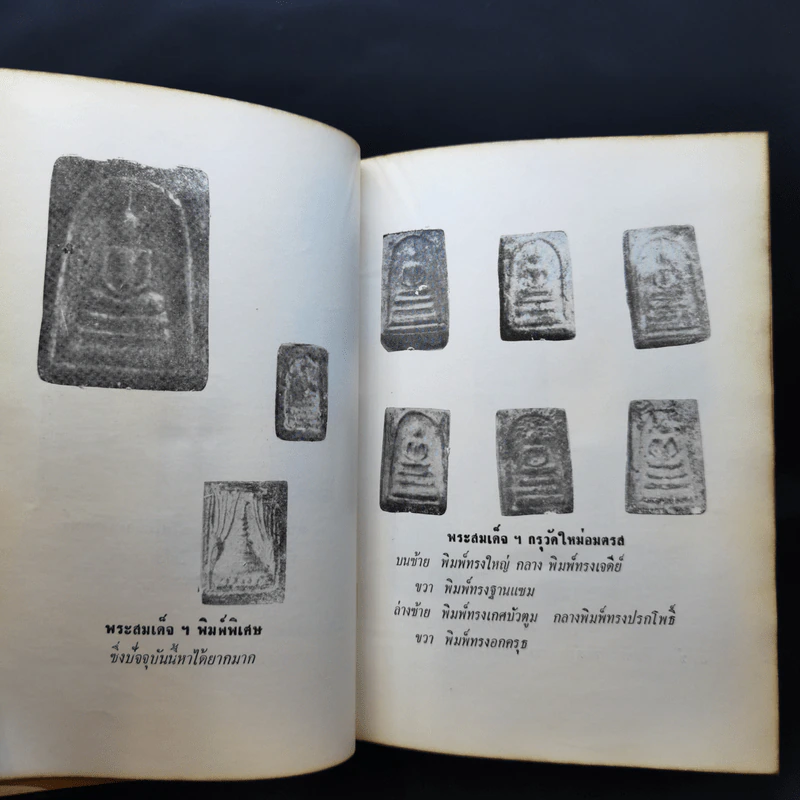 พระสมเด็จ ฯ พิมพ์พิเศษ
ซึ่งปัจจุบันนี้หาได้ยากมาก
พระสมเด็จ ฯ กรุวัดใหม่อมตรส
บนซ้าย พิมพ์ทรงใหญ่ กลาง พิมพ์ทรงเจดีย์
ขวา พิมพ์ทรงฐานแซม
ล่างซ้าย พิมพ์ทรงเกศบัวตูม กลางพิมพ์ทรงปรกโพธิ์
ขวา พิมพ์ทรงอกครุธ